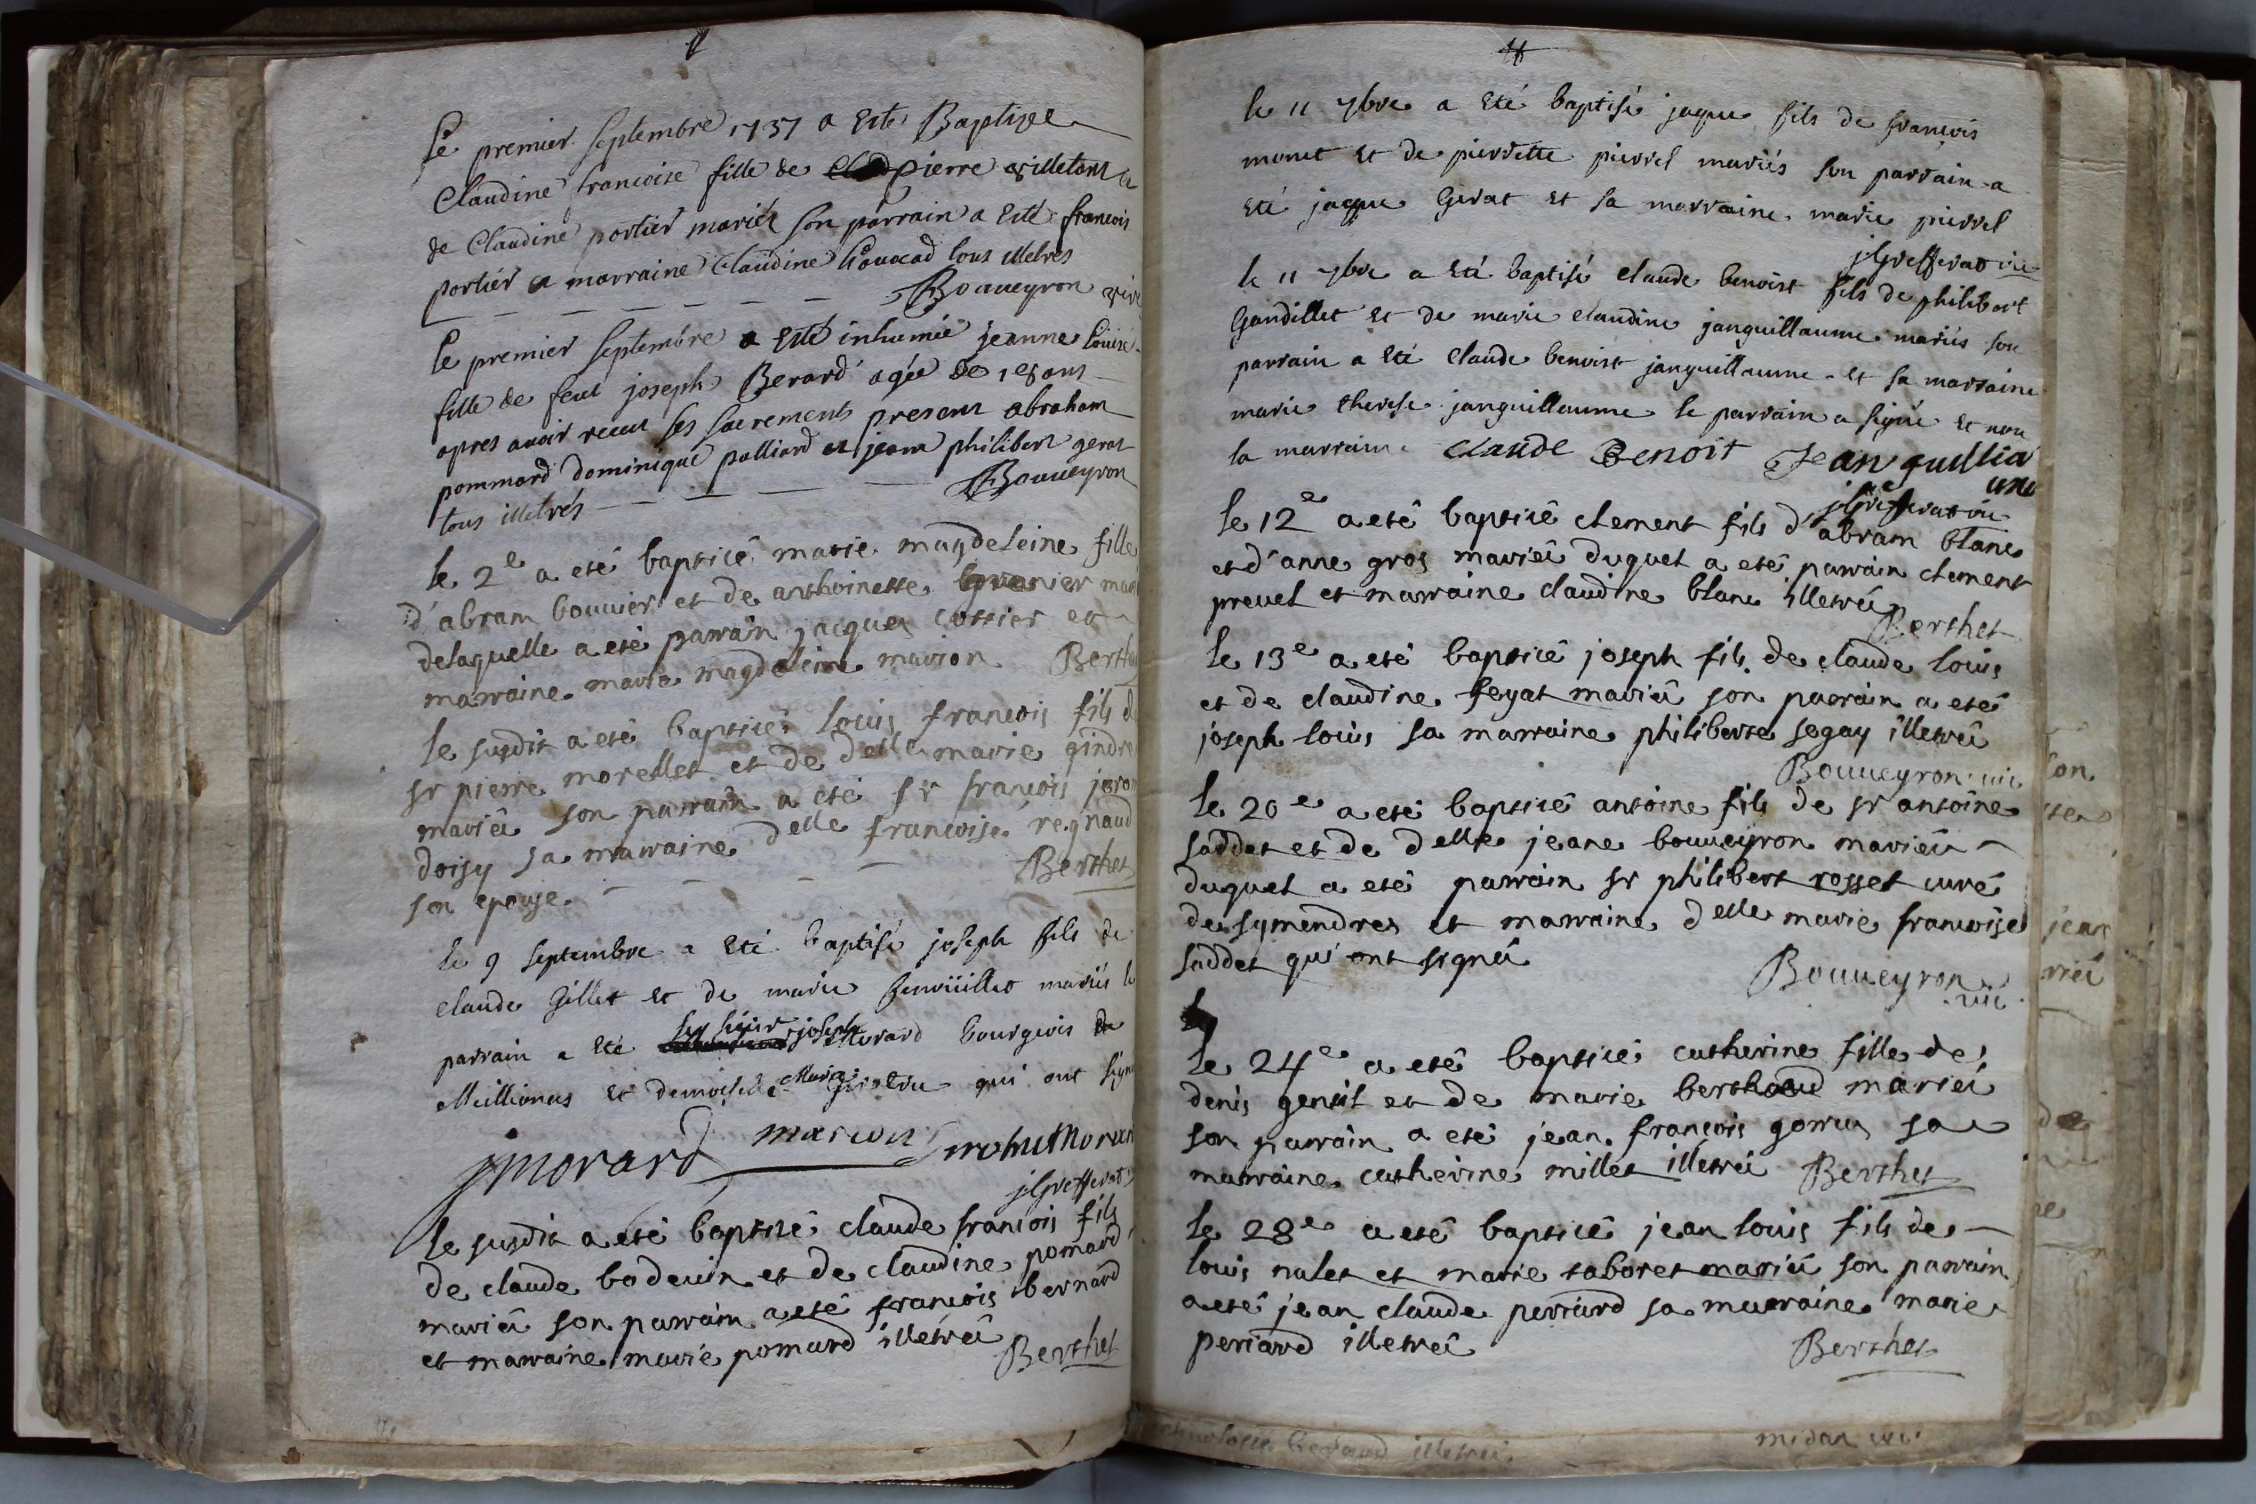 Le premier Septembre 1737 a Esté Baptizée
Claudine francoise fille de pierre villetant et
de Claudine portier mariés son parrain a Esté francois
portier et marraine Claudine tous illetrés
Bouveyron vic
Le premier Septembre a Esté inhumée jeanne Louise
fille de feut joseph Berard agée de ans
apres avoir receu ses sacrements presents abraham
pommard dominique palliard et jean philibert gerat
tous illetrés Bouveyron
le 2e a eté baptisé marie magdeleine fille
d'abram bouvier et de anthoinette
delaquelle a eté parrain jacques cottier et
marraine marie magdeleine Berthet
le susdit a eté baptisé louis francois fils de
sr pierre morellet et de delle marie gindre
mariés son parrain a eté sr francois
doisy sa marraine delle francoise regnaud
son epouse Berthet
le 9 septembre a Eté baptisé joseph fils de
claude Gillet et de marie mariés le
parrain a Eté sieur joseph Morard bourgeois de
Meillionas et demoiselle qui ont signé
jMorard Morard
jGrefferat
le susdit a eté baptisé claude francois fils
de claude bodevin et de claudine pomard
mariés son parrain a eté francois bernard
et marraine marie pomard illetrés Berthet
le 11 7bre a Eté baptisé jaque fils de francois
monet Et de pierrette pierrel mariés son parrain a
Eté jaque Gerat Et sa marraine marie pierrel
jGrefferat vic
le 11 7bre a Eté baptisé claude benoist fils de philibert
Gandillet Et de marie claudine janguillaume mariés son
parrain a Eté claude benoist janguillaume Et sa marraine
marie therese janguillaume le parrain a signé Et non
la marraine Claude Benoit Jeanguillia
ume
jGrefferat vic
le 12e a eté baptisé clement fils d'abram blanc
et d'anne gros mariés duquel a eté parrain clement
prevel et marraine claudine blanc illetrés
Berthet
le 13e a eté baptisé joseph fils de claude louis
et de claudine feyat mariés son parrain a eté
joseph louis sa marraine philiberte segay illetrés
Bouveyron vic
le 20e a eté baptisé antoine fils de sr antoine
saddet et de delle jeane bouveyron mariés
duquel a eté parrain sr philibert rosset curé
de symendres et marraine delle marie francoise
saddet qui ont signés
Bouveyron
vic
le 24e a eté baptisé catherine fille de
denis genoil et de marie berthaud mariés
son parrain a eté jean francois gorras sa
marraine catherine millet illetrés Berthet
le 28e a eté baptisé jean louis fils de
louis nalet et marie taboret mariés son parrain
a eté jean claude perrard sa marraine marie
periard illetrés Berthet
illetrés midan vic